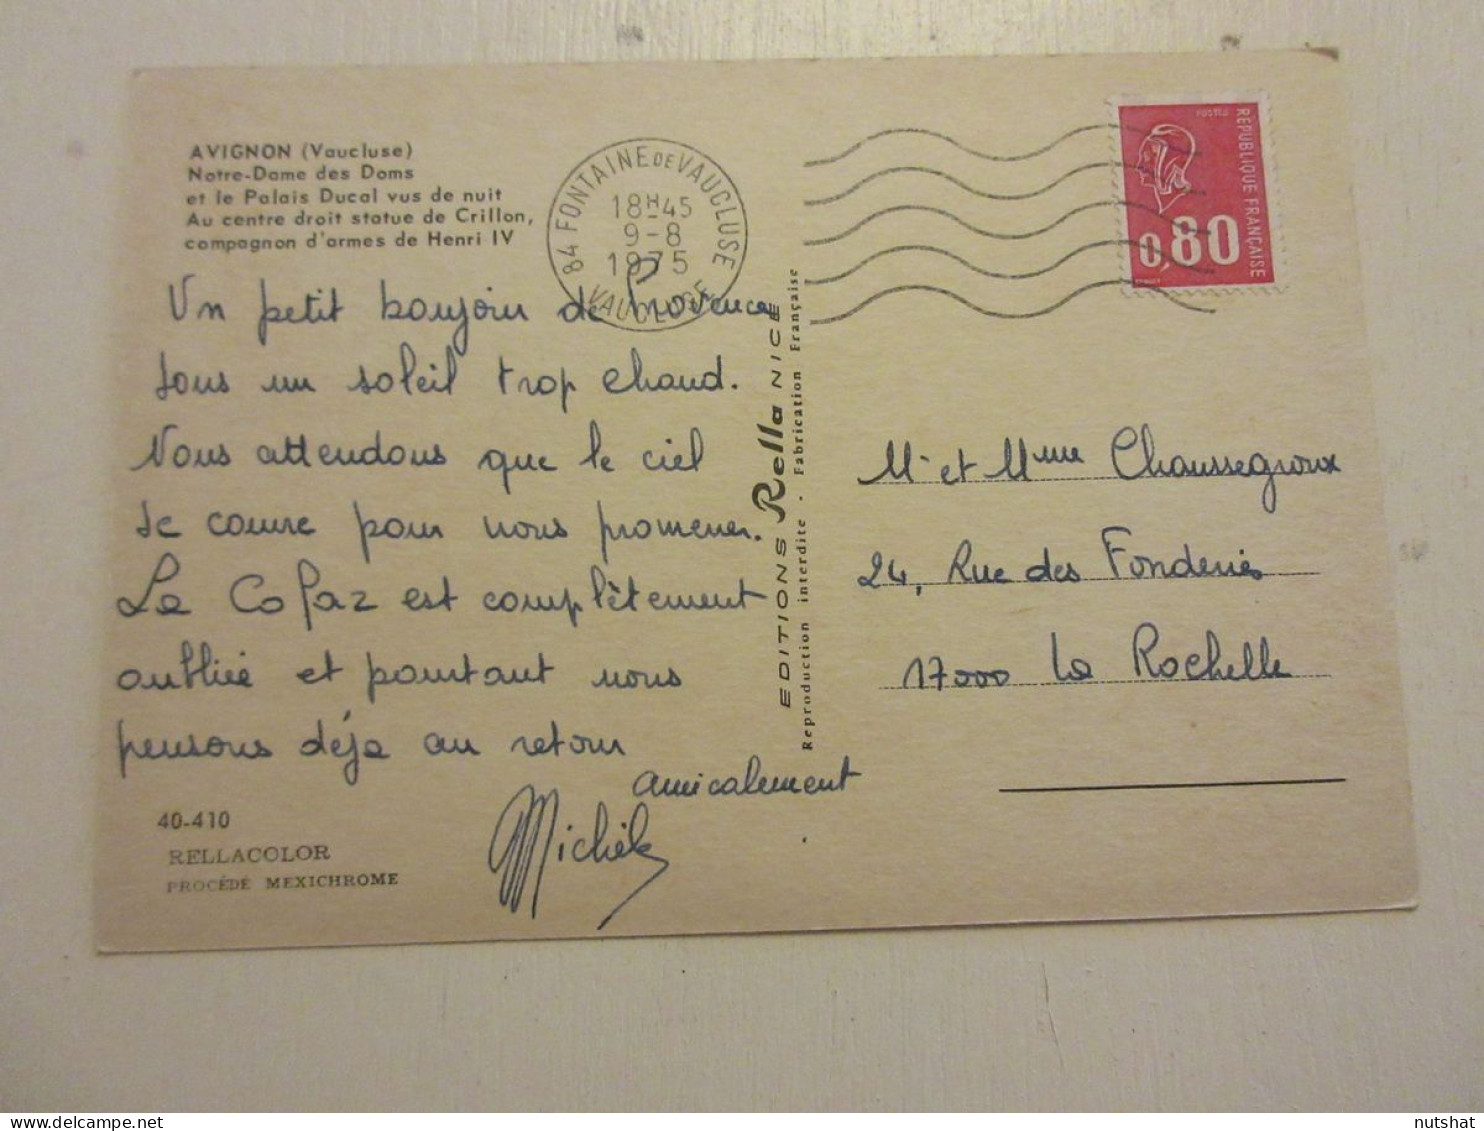 AVIGNON (Vaucluse)
Notre-Dame des Doms
et le Palais Ducal vus de nuit
Au centre droit statue de Crillon,
compagnon d'armes de Henri IV
84 FONTAINE DE VAUCLUSE
18H45
9-8
1975
VAUCLUSE
REPUBLIQUE FRANÇAISE
0,80
Un petit bonjour de Provence
sous un soleil trop chaud.
Nous attendons que le ciel
se couvre pour nous promener.
La Cofaz est complètement
oubliée et pourtant nous
pensons déja au retour
amicalement
Michèle
EDITIONS Rella NICE
Reproduction interdite - Fabrication Française
Mr et Mme Chaussegroux
24, Rue des Fonderies
17000 La Rochelle
40-410
RELLACOLOR
PROCÉDÉ MEXICHROME
nutshat